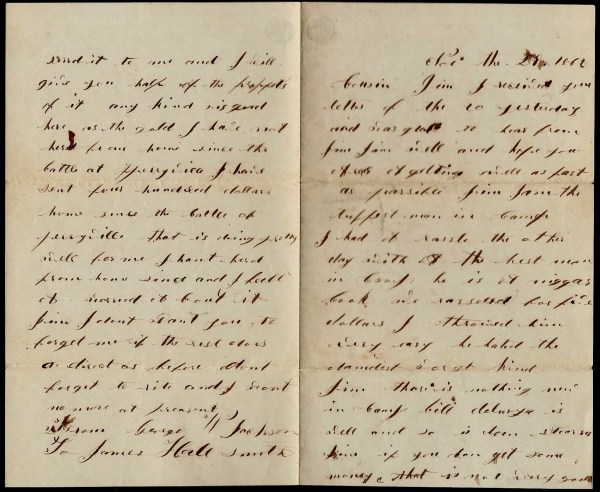 Nov the 29 1862
Cousin Jim I received your
letter of the 20 yesterday
and was glad to hear from
Jim Jim well and hope you
are getting well as fast
as possible Jim I am the
tuffest man in Camp
I had a rassle the other
day with the best man
in Camp he is
we rasseled for five
dollars I throwed him
very easy he hated the
damdest sort kind
Jim thare is nothing new
in Camp bill is
well and so is
Jim if you can get some
money that is not very good
send it to me and I will
give you half of the proffets
of it any kind is good
here as the gold I have not
herd from home since the
battle at perryvile I have
sent four hundred dollars
home since the battle of
perryville that is doing pretty
well for me I hant herd
from home since and I feell
worried a bout it
Jim I dont want you to
forget me if the rest does
direct as before dont
forget to rite and I want
no more at present
from George Jackson
To James Hall Smith